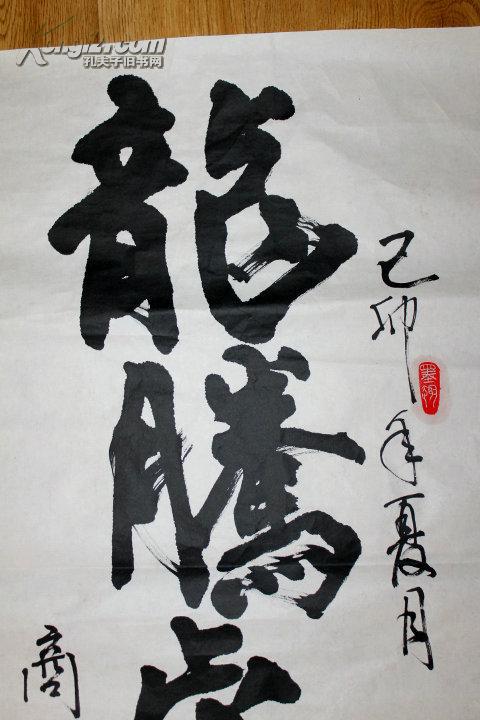 Kongfz.com
孔夫子旧书网
己卯年夏月
墨趣
龍騰
商